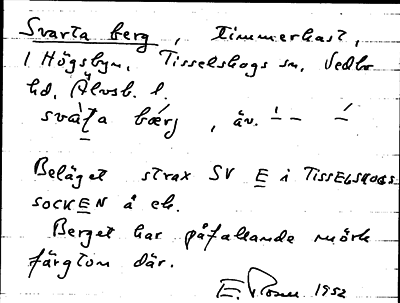 Svarta berg, timmerkast,
i Högsbyn, Tisselskogs sn, Vedbo
hd, Älvsb. l.
svat̀a bærj, äv. ˋ– –ˊ
Beläget strax SV E i TISSELSKOGS
SOCKEN å ek.
Berget har påfallande mörk
färgton där.
E. 1952